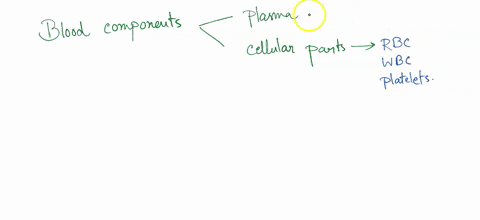 Blood components
Plasma
cellular parts → RBC
WBC
platelets.